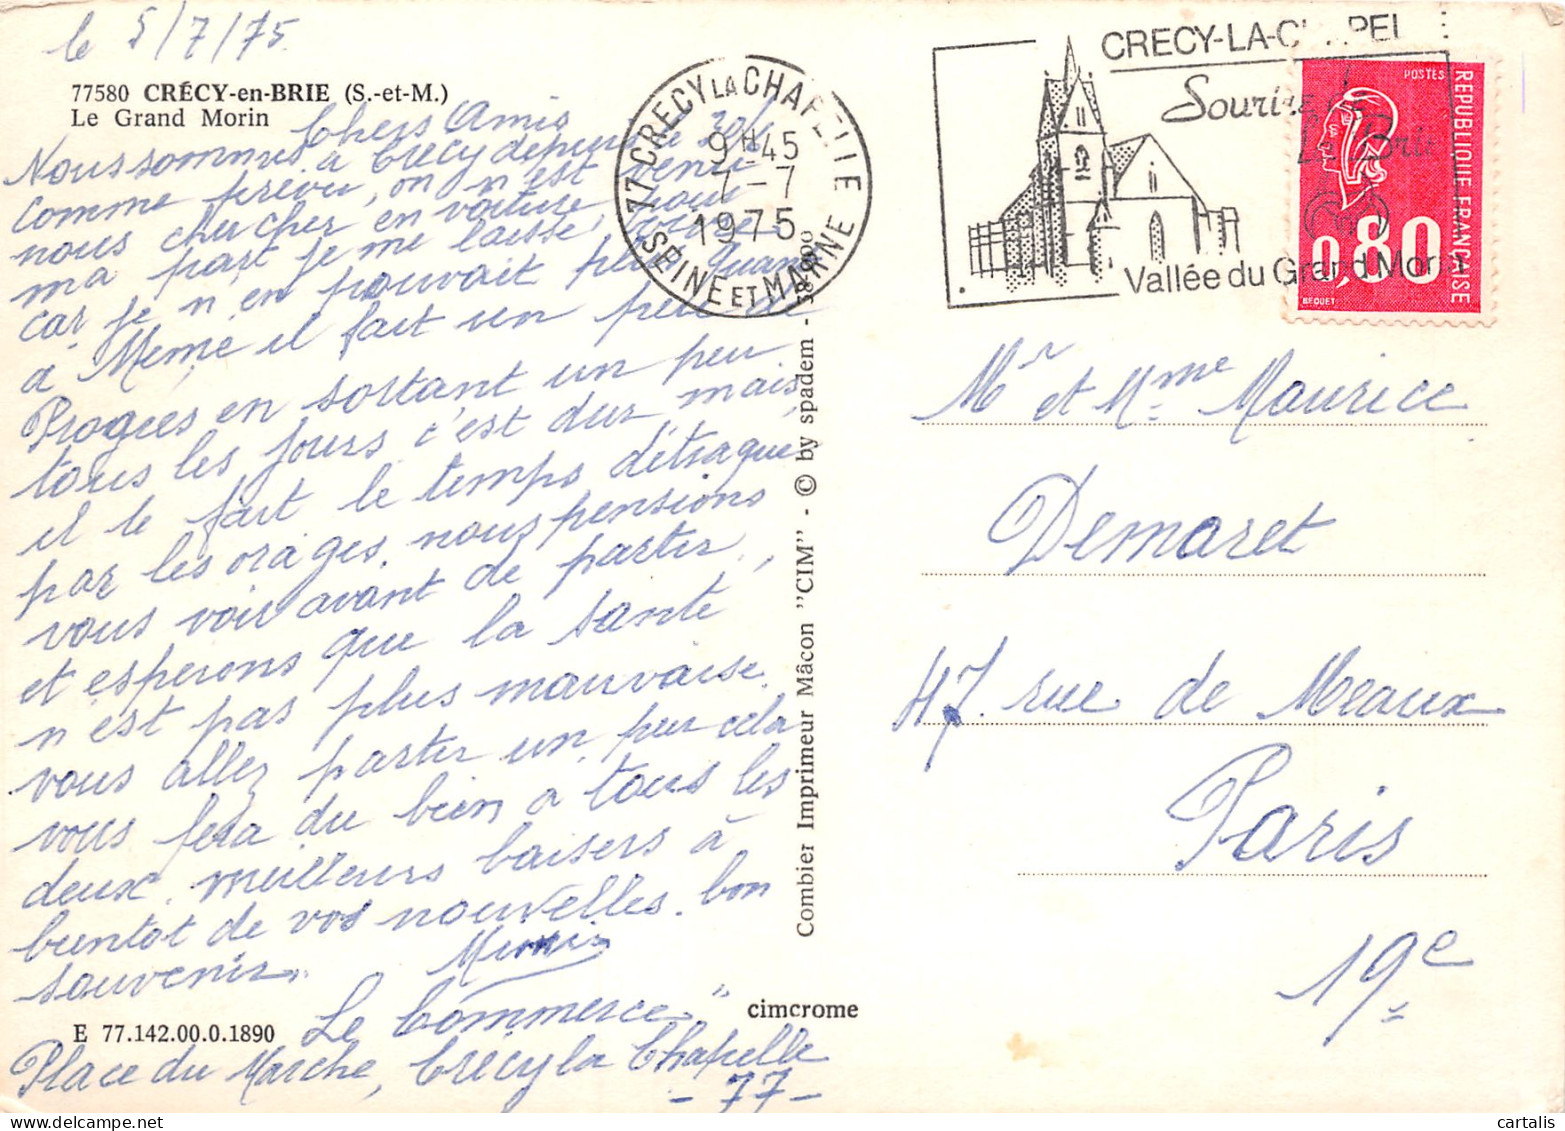 le 5/7/75
77580 CRÉCY-en-BRIE (S.-et-M.)
Le Grand Morin
Chers Amis
Nous sommes à Crécy depuis le 30/6
comme prévu, on n'est venu
nous chercher en voiture, pour
ma part je me laisse
car je n'en pouvait plus, quant
a Mémé il fait un peu de
Progrès en sortant un peu
tous les jours c'est dur mais,
il le fait le temps détraqué
par les orages, nous pensions
vous voir avant de partir,
et esperons que la santé
n'est pas plus mauvaise.
vous allez partir un peu cela
vous fera du bien a tous les
deux, meilleurs baisers à
bientot de vos nouvelles. bon
souvenir. Mimi
Le Commerce"
Place du Marché, Crécy la Chapelle
- 77 -
E 77.142.00.0.1890
cimcrome
Combier Imprimeur Mâcon "CIM" - © by spadem - 38900
77 CRECY LA CHAPELLE
9H45
7-7
1975
SEINE ET MARNE
CRECY-LA-CHAPEL
Sourire de
La Brie
Vallée du Grand Morin
POSTES
REPUBLIQUE FRANÇAISE
0,80
BEQUET
Mr et Mme Maurice
Demaret
47. rue de Meaux
Paris
19e